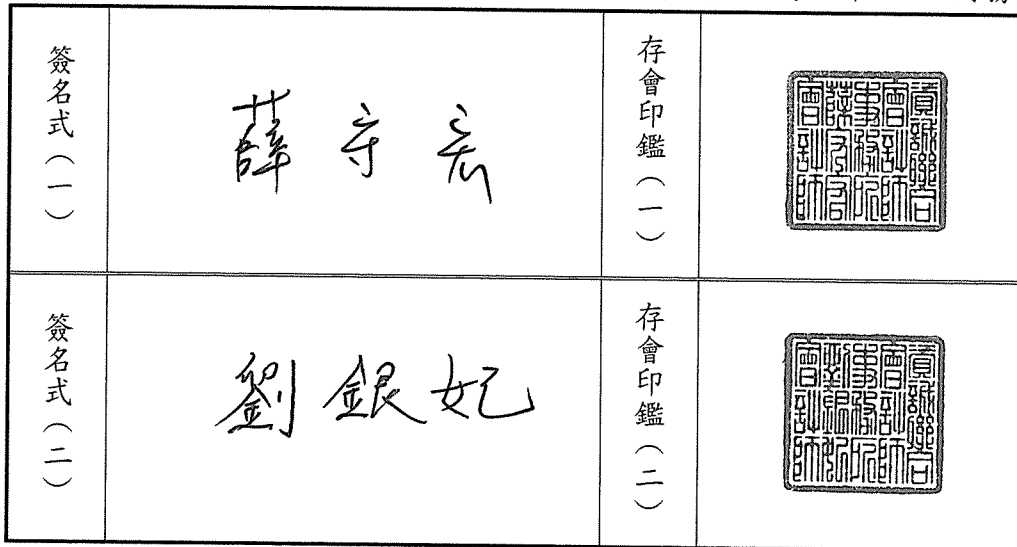 簽名式(一)
薛守宏
存會印鑑(一)
資誠聯合
會計師
事務所
薛守宏
會計師
簽名式(二)
劉銀妃
存會印鑑(二)
資誠聯合
會計師
事務所
劉銀妃
會計師